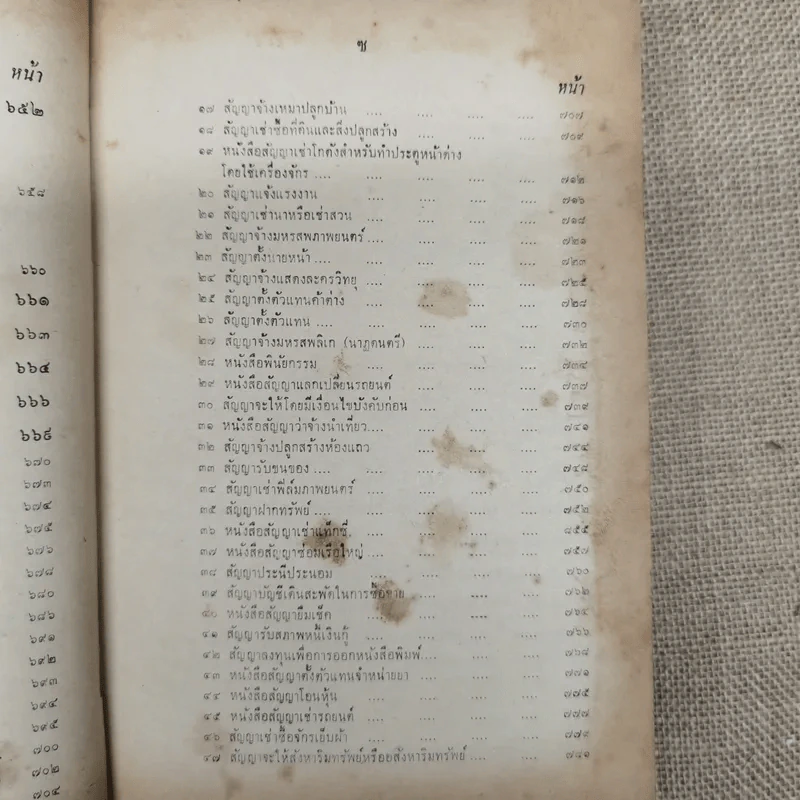 หน้า
๖๕๒
๖๕๘
๖๖๐
๖๖๑
๖๖๓
๖๖๔
๖๖๖
๖๖๙
๖๗๐
๖๗๓
๖๗๔
๖๗๕
๖๗๖
๖๗๘
๖๘๐
๖๘๖
๖๙๑
๖๙๒
๖๙๓
๖๙๔
๖๙๕
๗๐๐
๗๐๒
๗๐๔
ซ
หน้า
๑๗ สัญญาจ้างเหมาปลูกบ้าน .... .... .... .... ๗๐๗
๑๘ สัญญาเช่าซื้อที่ดินและสิ่งปลูกสร้าง .... .... .... ๗๐๙
๑๙ หนังสือสัญญาเช่าโกดังสำหรับทำประตูหน้าต่าง
โดยใช้เครื่องจักร .... .... .... .... ๗๑๒
๒๐ สัญญาแจ้งแรงงาน .... .... .... .... ๗๑๖
๒๑ สัญญาเช่านาหรือเช่าสวน .... .... .... .... ๗๑๘
๒๒ สัญญาจ้างมหรสพภาพยนตร์ .... .... .... .... ๗๒๑
๒๓ สัญญาตั้งนายหน้า .... .... .... .... ๗๒๓
๒๔ สัญญาจ้างแสดงละครวิทยุ .... .... .... .... ๗๒๕
๒๕ สัญญาตั้งตัวแทนค้าต่าง .... .... .... .... ๗๒๘
๒๖ สัญญาตั้งตัวแทน .... .... .... .... .... ๗๓๐
๒๗ สัญญาจ้างมหรสพลิเก (นาฎดนตรี) .... .... .... ๗๓๒
๒๘ หนังสือพินัยกรรม .... .... .... .... ๗๓๔
๒๙ หนังสือสัญญาแลกเปลี่ยนรถยนต์ .... .... .... ๗๓๗
๓๐ สัญญาจะให้โดยมีเงื่อนไขบังคับก่อน .... .... .... ๗๓๙
๓๑ หนังสือสัญญาว่าจ้างนำเที่ยว .... .... .... .... ๗๔๑
๓๒ สัญญาจ้างปลูกสร้างห้องแถว .... .... .... ๗๔๔
๓๓ สัญญารับขนของ .... .... .... .... .... ๗๔๘
๓๔ สัญญาเช่าฟิล์มภาพยนตร์ .... .... .... .... ๗๕๐
๓๕ สัญญาฝากทรัพย์ .... .... .... .... .... ๗๕๒
๓๖ หนังสือสัญญาเช่าแท็กซี่ .... .... .... ๘๕๕
๓๗ หนังสือสัญญาซ่อมเรือใหญ่ .... .... .... .... ๗๕๗
๓๘ สัญญาประนีประนอม .... .... .... .... ๗๖๐
๓๙ สัญญาบัญชีเดินสะพัดในการซื้อขาย .... .... .... ๗๖๒
๔๐ หนังสือสัญญายืมเช็ค .... .... .... .... ๗๖๔
๔๑ สัญญารับสภาพหนี้เงินกู้ .... .... .... .... ๗๖๖
๔๒ สัญญาลงทุนเพื่อการออกหนังสือพิมพ์ .... .... .... ๗๖๘
๔๓ หนังสือสัญญาตั้งตัวแทนจำหน่ายยา .... .... .... ๗๗๑
๔๔ หนังสือสัญญาโอนหุ้น .... .... .... .... ๗๗๕
๔๕ หนังสือสัญญาเช่ารถยนต์ .... .... .... .... ๗๗๗
๔๖ สัญญาเช่าซื้อจักรเย็บผ้า .... .... .... .... ๗๗๙
๔๗ สัญญาจะให้สังหาริมทรัพย์หรืออสังหาริมทรัพย์ .... .... .... ๗๔๑